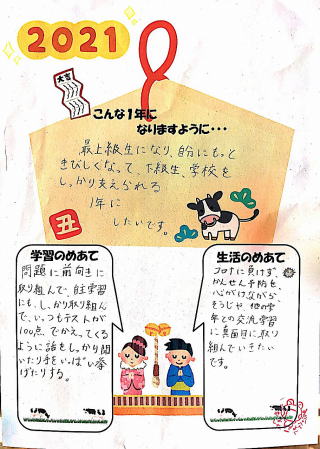 2021
大吉
こんな1年に
なりますように・・・
最上級生になり、自分にもっと
きびしくなって、下級生、学校を
しっかり支えられる
1年に
したいです。
丑
学習のめあて
問題に前向きに
取り組んで、自主学習
にも、しっかり取り組ん
で、いつもテストが
100点でかえってくる
ように話をしっかり聞
いたり手をいっぱい挙
げたりする。
生活のめあて
コロナに負けず、
かんせん予防を
心がけながら
そうじや、他の学
年との交流学習
に真面目に取り
組んでいきたい
です。